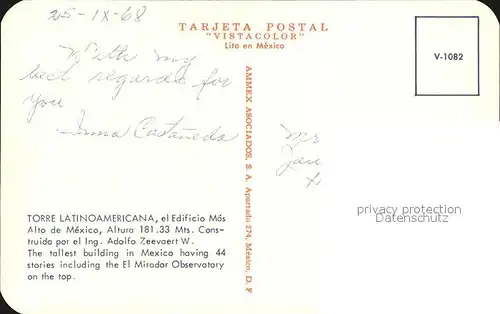 25-IX-68
TARJETA POSTAL
"VISTACOLOR"
Lito en México
V-1082
With my
best regards for
you
Irma Castañeda
AMMEX ASOCIADOS, S. A. Apartado 274, México, D. F
privacy protection
oldthing.de
TORRE LATINOAMERICANA, el Edificio Más
Alto de México, Altura 181.33 Mts. Cons-
truida por el Ing. Adolfo Zeevaert W.
The tallest building in Mexico having 44
stories including the El Mirador Observatory
on the top.